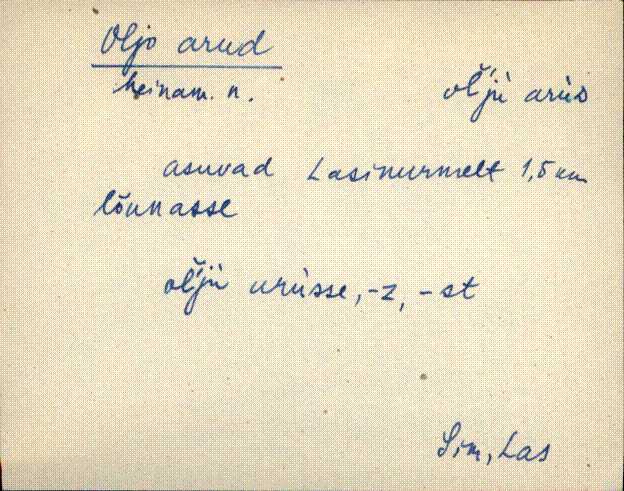 Oljo arud
heinam. n.
oľ̆jü arüs
asuvad Lasinurmelt 1,5 km
lõunasse
oľ̆jü urüsse, -z, -st
Sim, Las